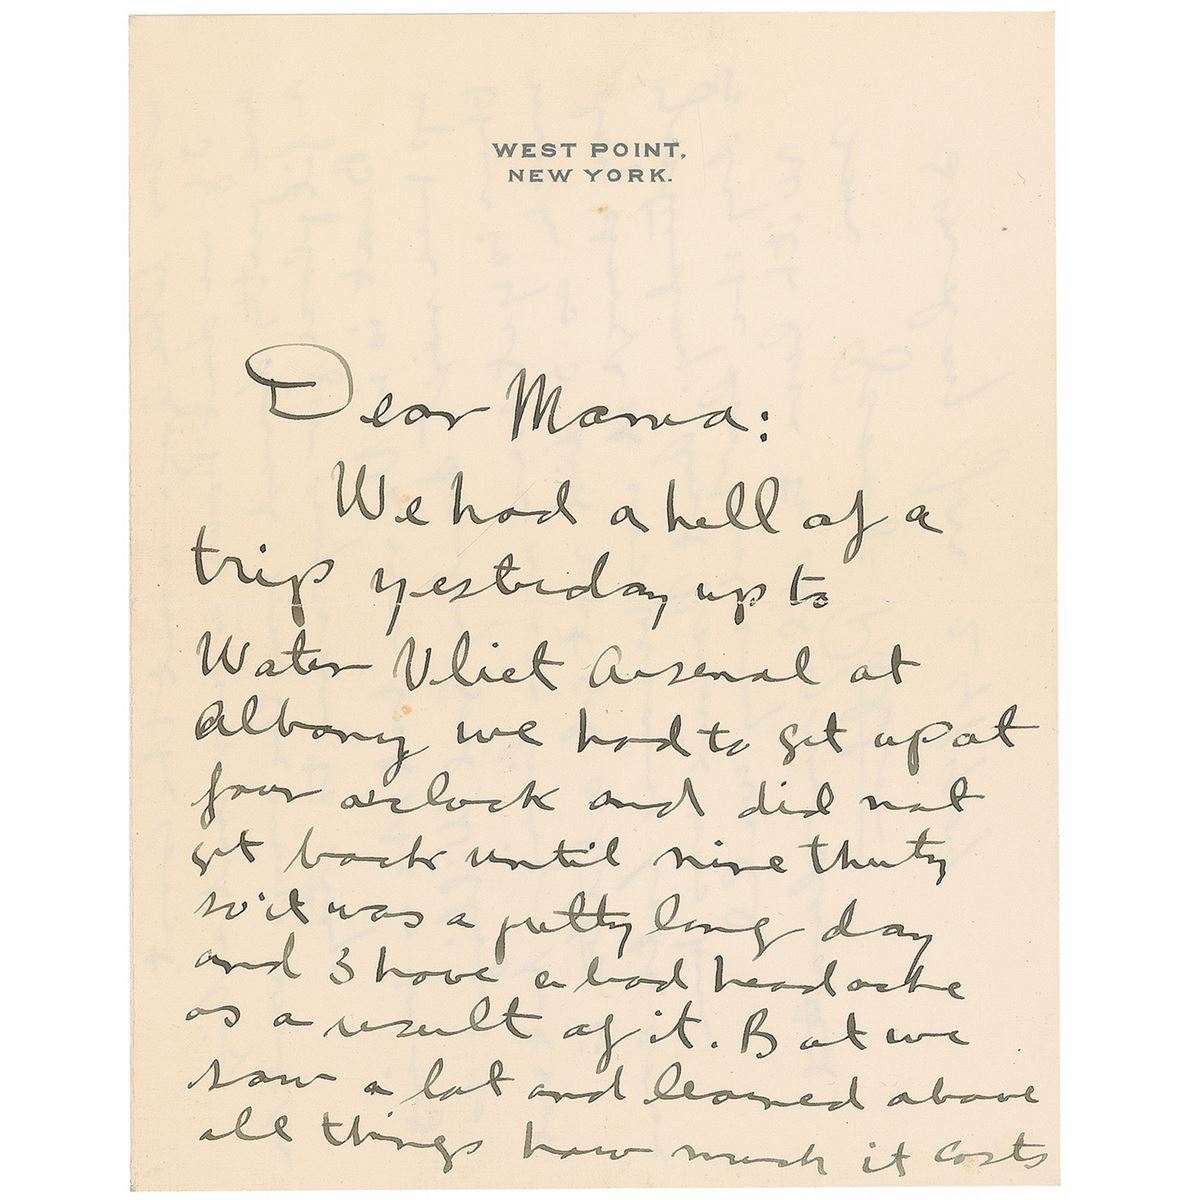 WEST POINT,
NEW YORK.
Dear Mama:
We had a hell of a
trip yesterday up to
Water Vliet Arsenal at
Albany we had to get up at
four oclock and did not
get back until nine thirty
so it was a pretty long day
and I have a bad headache
as a result of it. But we
saw a lot and learned above
all things how much it costs